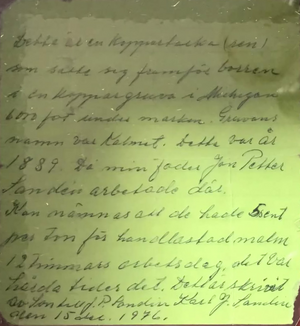 Detta är en kopparbacka (sen)
som satte sig framför borren
i en koppargruva i Michigan
600 fot under marken. Gruvans
namn var Kalmet. Detta var år
1889. Då min fader Jon Petter
Sanden arbetade där.
Kan nämnas att de hade 5 sent
per ton för handlastad malm
12 timmars arbetsdag, det var
hårda tider det. Detta är skrivit
av P. Sandin Karl J. Sanden
den 15 dec. 1976.